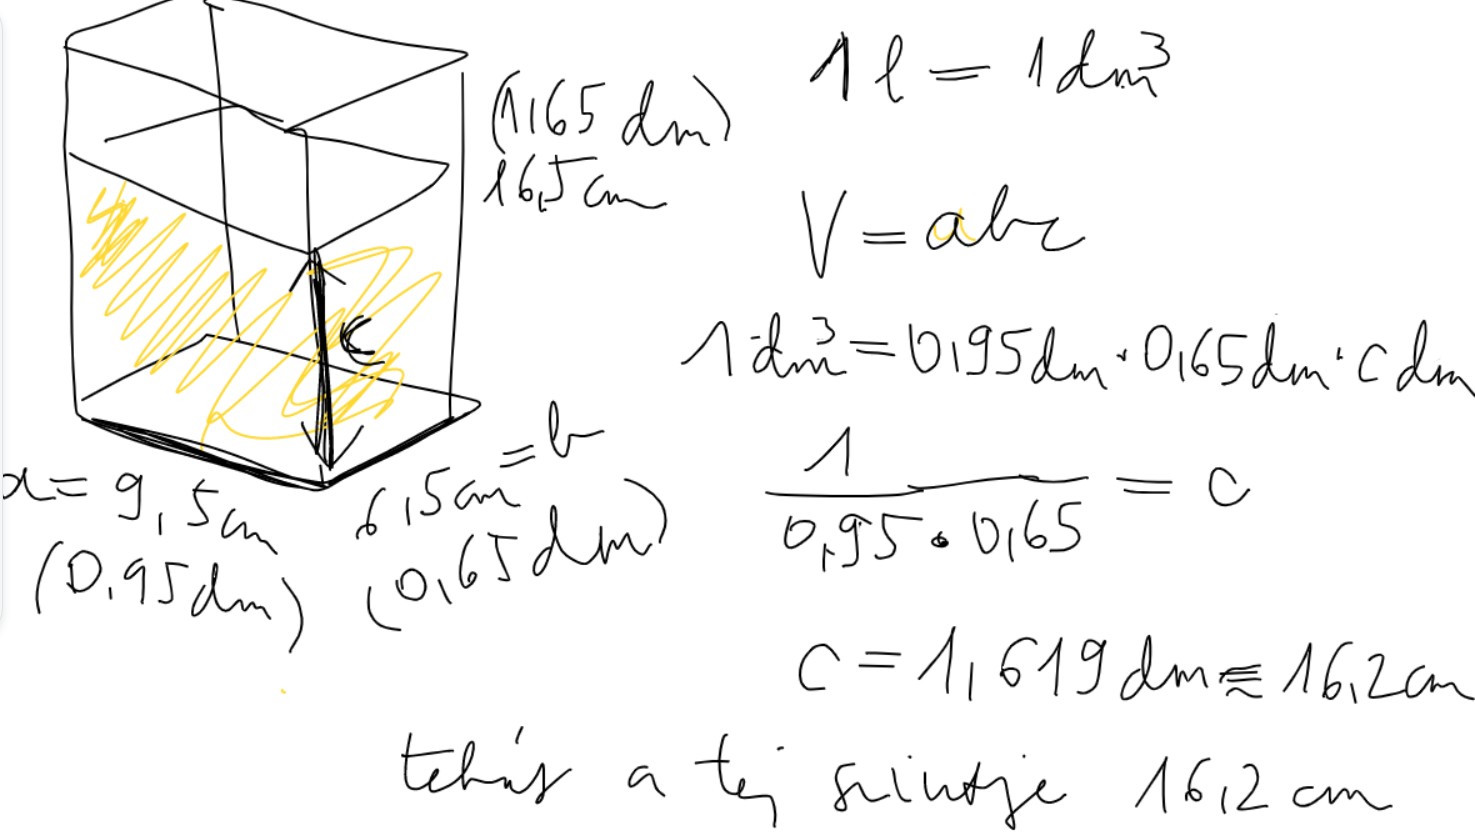 (1,65 dm)
16,5 cm
a = 9,5 cm
(0,95 dm)
6,5 cm = b
(0,65 dm)
c
1 l = 1 dm³
V = abc
1 dm³ = 0,95 dm · 0,65 dm · c dm
1 / 0,95 · 0,65 = c
c = 1,619 dm ≈ 16,2 cm
tehát a tej szintje 16,2 cm